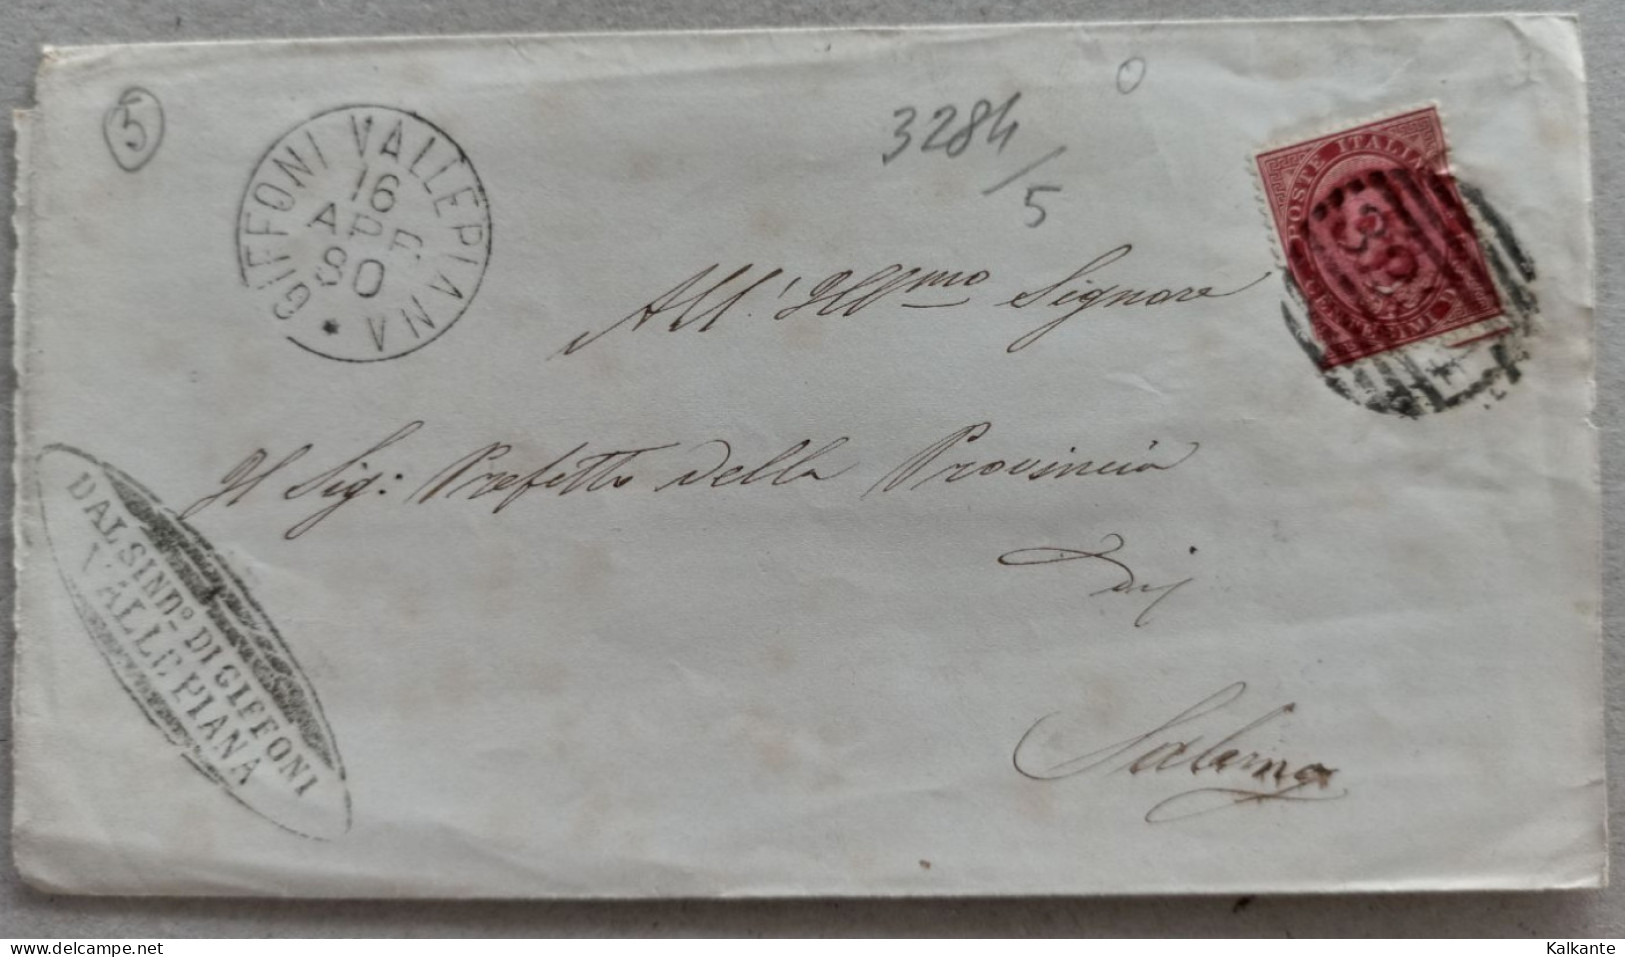 5
GIFFONI VALLEPIANA
16
APR
80
3284/5
POSTE ITALIANE
All'Ill.mo Signore
Il Sig: Prefetto della Provincia
di
Salerno
DAL SIND.º DI GIFFONI
VALLE PIANA
delcampe.net
Kalkante